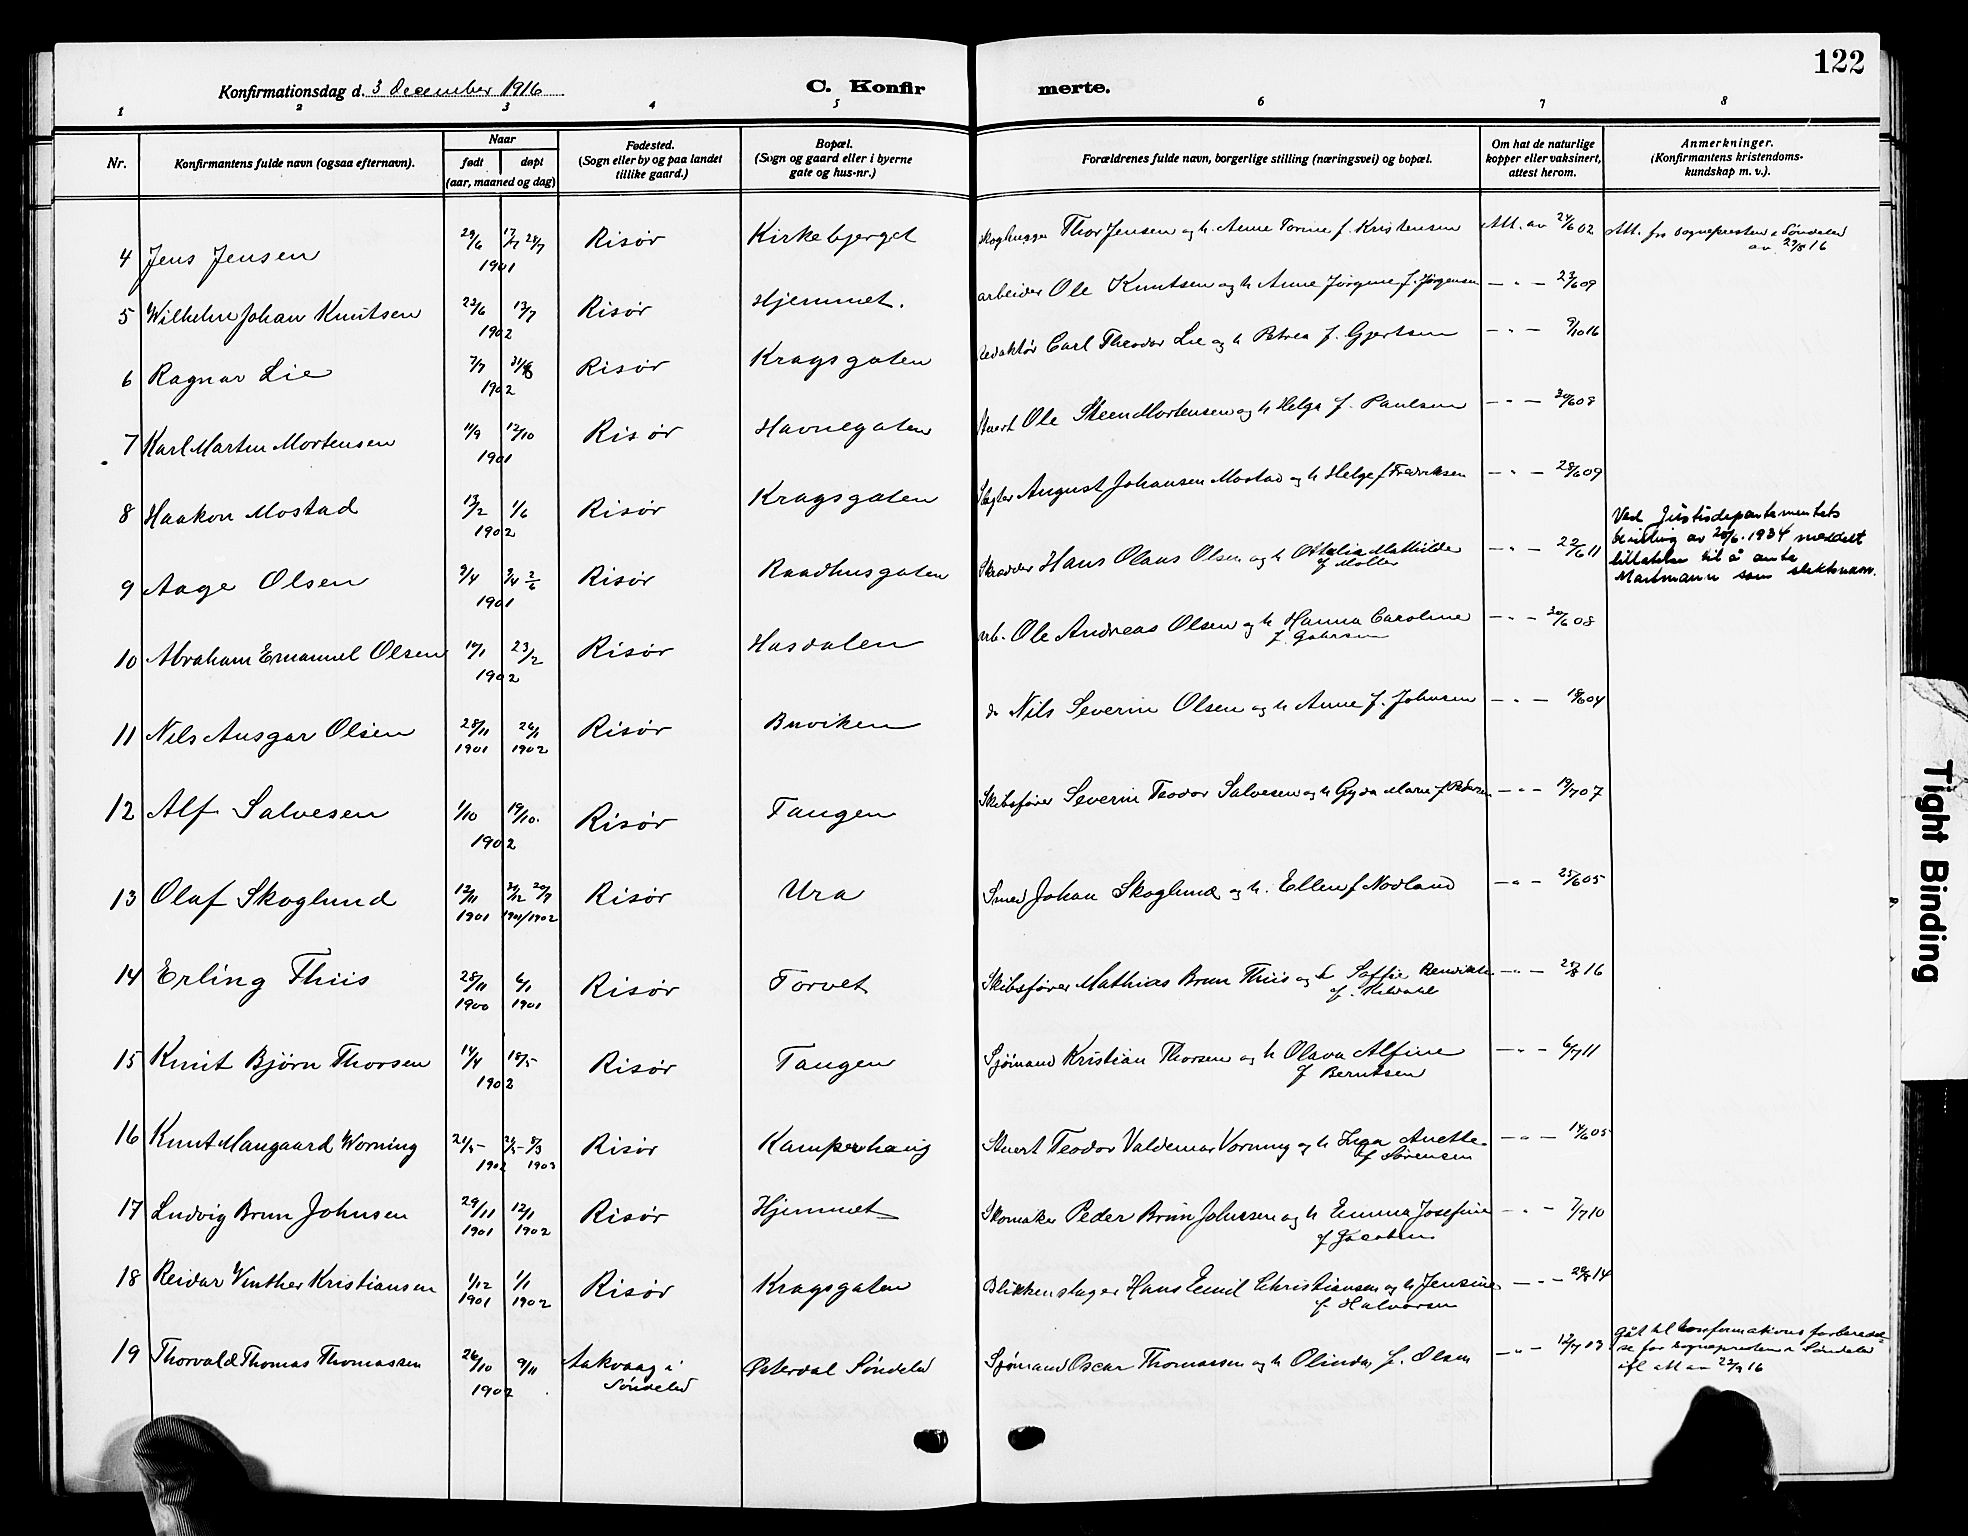 122
Konfirmationsdag d. 3 december 1916
C. Konfir merte.
1 2 3 4 5 6 7 8
Nr.
Konfirmantens fulde navn (ogsaa efternavn).
Naar
født døpt
(aar, maaned og dag)
Fødested.
(Sogn eller by og paa landet
tillike gaard.)
Bopæl.
(Sogn og gaard eller i byerne
gate og hus-nr.)
Forældrenes fulde navn, borgerlige stilling (næringsvei) og bopæl.
Om hat de naturlige
kopper eller vaksinert,
attest herom.
Anmerkninger.
(Konfirmantens kristendoms-
kundskap m. v.).
4 Jens Jensen 29/6 17/7 28/7 1901 Risør Kirkebjerget Skoghugger Thor Jensen og h. Anne Torine f. Kristensen Att. av 24/6 02 Att. fra sognepresten i Søndeled
av 29/8 16
5 Wilhelm Johan Knutsen 23/6 13/7 1902 Risør Hjemmet. arbeider Ole Knutsen og h Anne Jørgine f. Jørgensen — " — 23/6 09
6 Ragnar Lie 7/7 1902 Risør Kragsgaten Redaktør Carl Theodor Lie og h Petrea f. Gjertsen — " — 9/10 16
7 Karl Martin Mortensen 11/9 12/10 1901 Risør Havnegaten Stuert Ole Steen Mortensen og h Helga f. Paulsen — " — 30/6 08
8 Haakon Mostad 13/2 1/6 1902 Risør Kragsgaten Slagter August Johansen Mostad og h Helge f Fredriksen — " — 28/6 09
9 Aage Olsen 3/4 2/6 1901 Risør Raadhusgaten Skrædder Hans Olaus Olsen og h Ottalia Mathilde
f Møller — " — 22/6 11
Ved Justisdepartementets
av 20/6. 1934 meddelt
tillatelse til å anta
Martmann som slektsnavn.
10 Abraham Emanuel Olsen 19/1 23/2 1902 Risør Hasdalen arb. Ole Andreas Olsen og h Hanna Caroline
f. — " — 30/6 08
11 Nils Ansgar Olsen 28/11 1901 26/1 1902 Risør Buviken do Nils Severin Olsen og h Anne f. Johnsen — " — 18/6 04
12 Alf Salvesen 1/10 19/10. 1902 Risør Tangen Skibsfører Severin Teodor Salvesen og h Gyda Marie f Pedersen — " — 19/7 07
13 Olaf Skoglund 12/11 1901 1901/1902 Risør Ura Smed Johan Skoglund og h. Ellen f Nodland — " — 25/6 05
14 Erling Thiis 28/11 1900 6/1 1901 Risør Torvet Skibsfører Mathias Brun Thiis og h Soffie Bendikte
f. Kildahl — " — 16
15 Knut Bjørn Thorsen 14/4 18/5 1902 Risør Tangen Sjømand Kristian Thorsen og h Olava Alfine
f Berntsen — " — 6/7 11
16 Knut Maugaard Worning 21/5 8/3 1902 1903 Risør Kamperhaug Stuert Teodor Valdemar Vorning og h Inga Anette
f Sørensen — " — 14/6 05
17 Ludvig Brun Johnsen 29/11 1901 12/1 1902 Risør Hjemmet Skomaker Peder Brun Johnsen og h Emma Josefine
f Jacobsen — " — 7/7 10
18 Reidar Winther Kristiansen 1/12 1901 1/1 1902 Risør Kragsgaten Blikkenslager Hans Emil Christiansen og h Jensine
f Halvorsen — " — 14
19 Thorvald Thomas Thomassen 26/10 9/11 1902 Aakvaag i
Søndeled Østerdal Søndeled Sjømand Oscar Thomassen og h Olinda f. Olsen — " — 12/7 13 Gåt til konfirmations forberedel-
se for sognepresten i Søndeled
ifl att av 22/9 16
Tight Binding